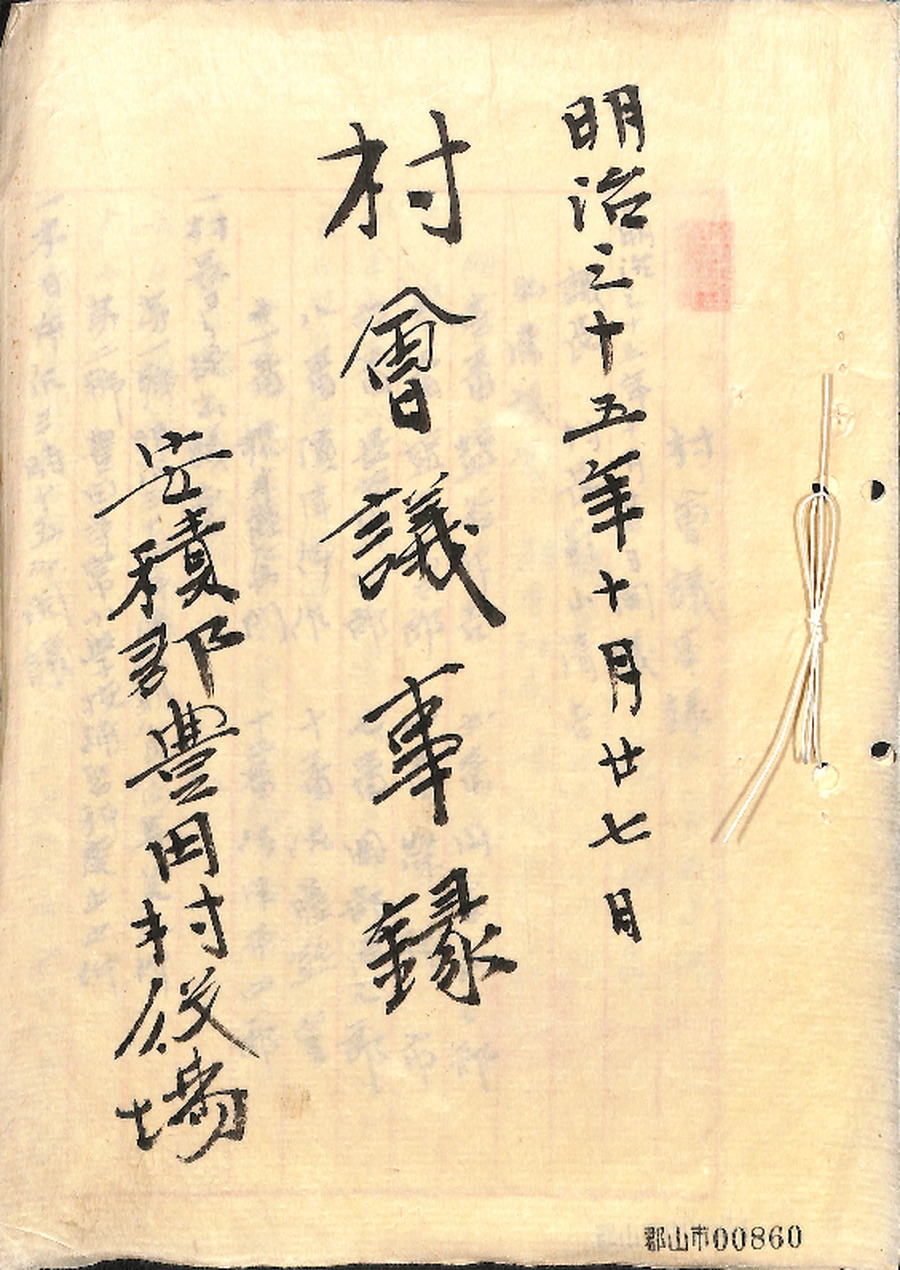 明治三十五年十月廿七日
村會議事録
安積郡豊田村役場
郡山市00860